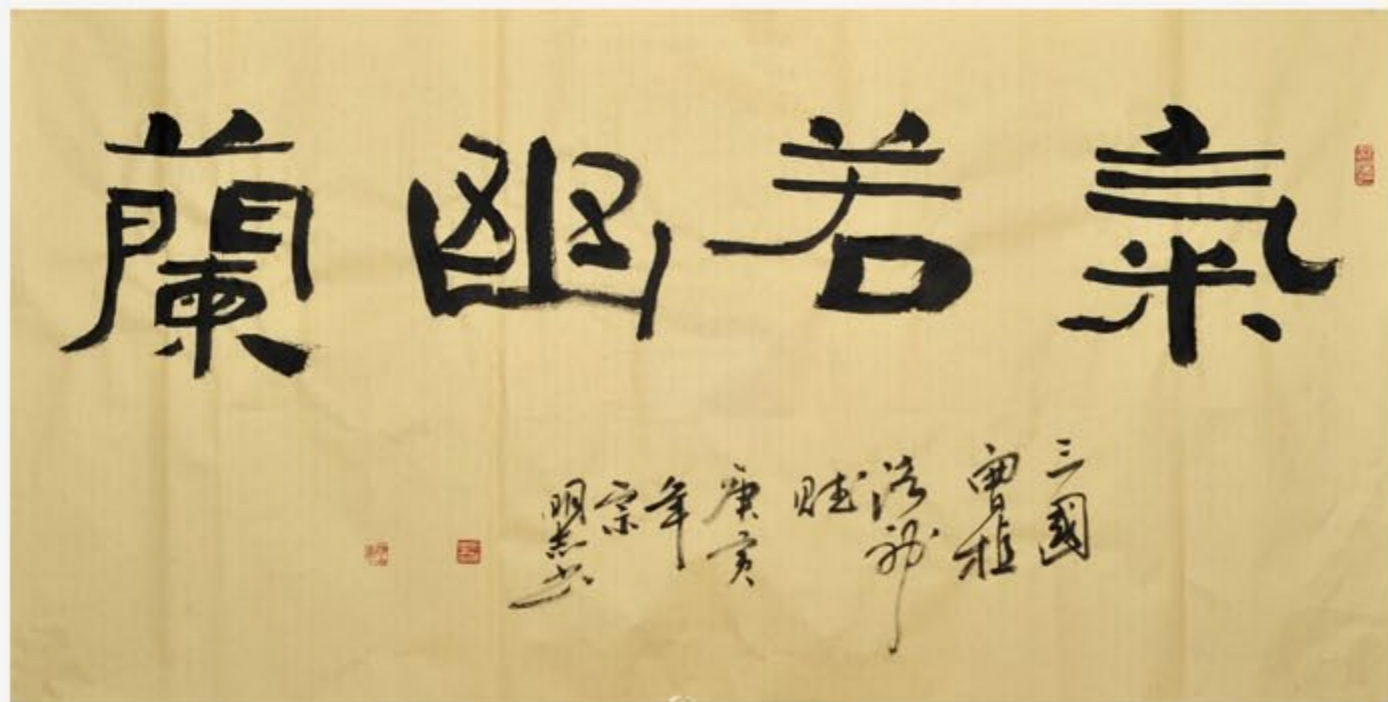 氣若幽蘭
三國
曹植
洛神
賦
庚寅
年
宗
明志书